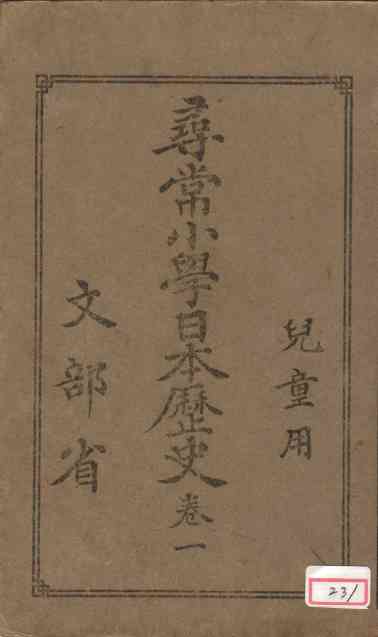 兒童用
尋常小學日本歷史卷一
文部省
231